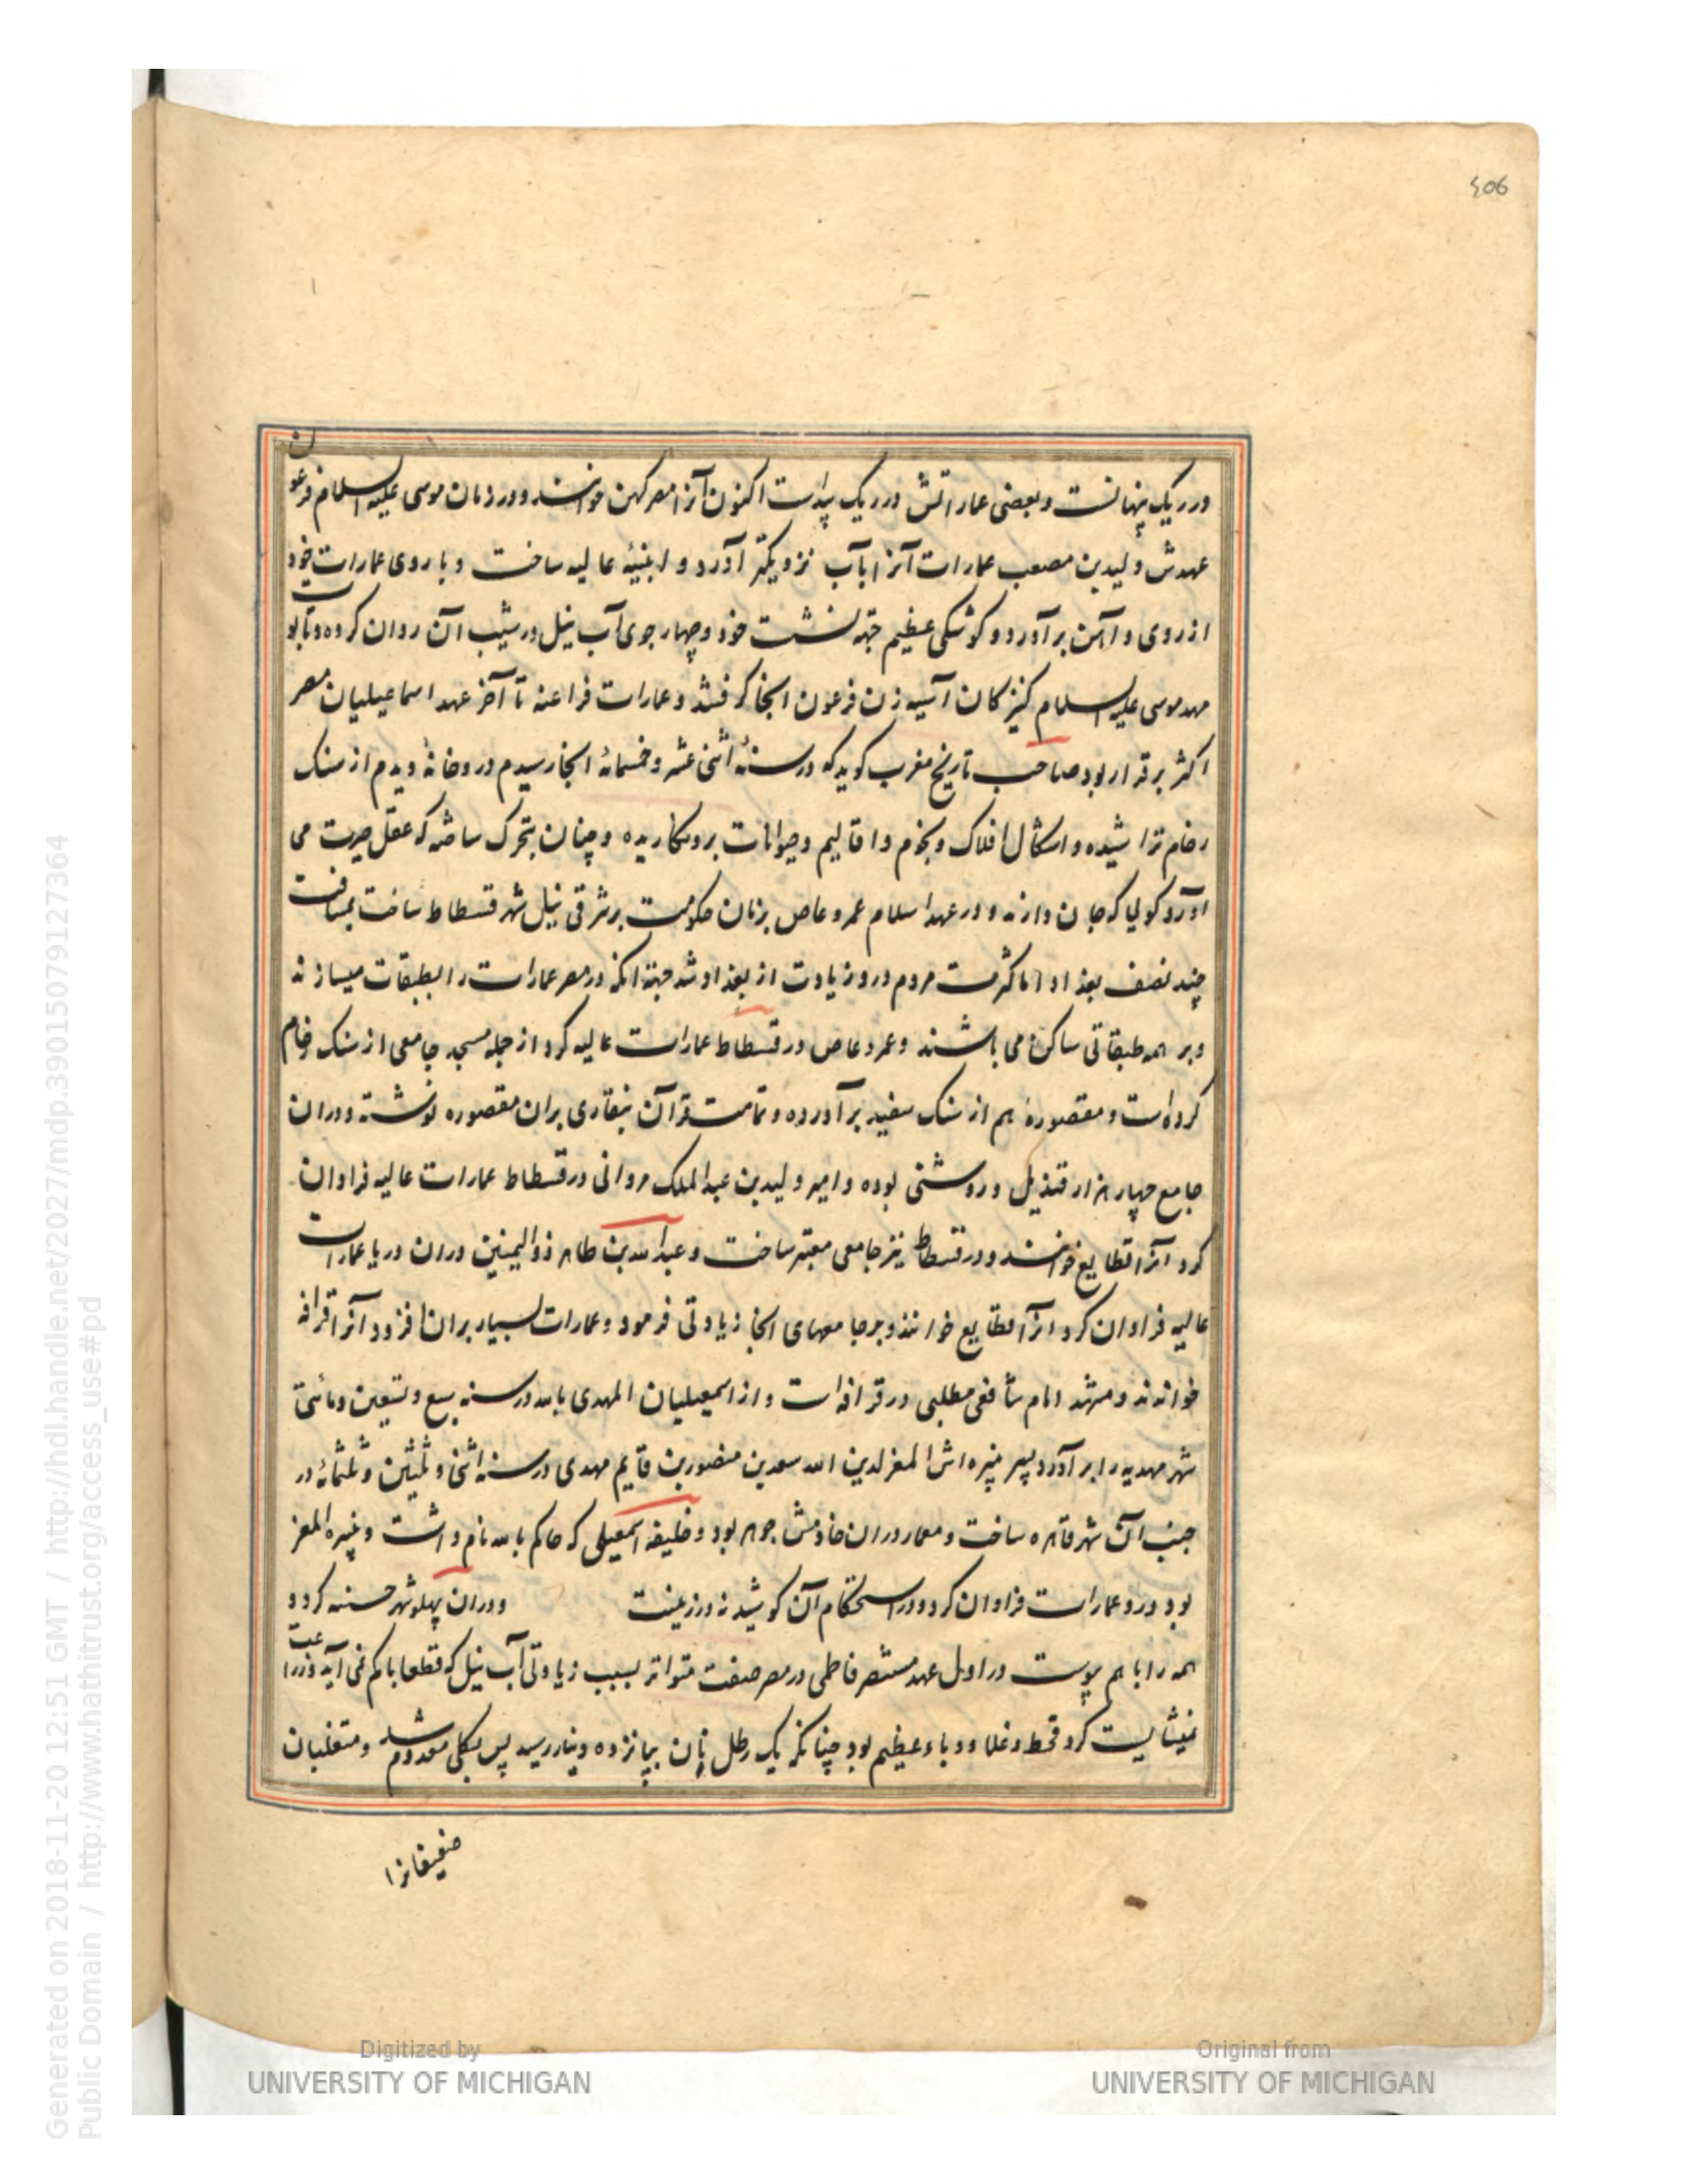 ٤٥6
در ریک پنهانست و بعضی عماراتش در ریک پیداست اکنون آنرا مصر کهن خوانند و در زمان موسی علیه السلام فرعون
عهدش ولید بن مصعب عمارات آنرا بآب نزدیکتر آورد و ابنیهٔ عالیه ساخت و باروی عمارات خود
از روی و آهن برآورد و کوشکی عظیم جهة نشست خود و چهار جوی آب نیل در شیب آن روان کرده و تابوت
مهد موسی علیه السلام کنیزکان آسیه زن فرعون آنجا کرفتند و عمارات فراعنه تا آخر عهد اسماعیلیان مصر
اکثر برقرار بود صاحب تاریخ مغرب کوید که در سنهٔ اثنی عشر و خمسمائهٔ آنجا رسیدم درو خانهٔ دیدم از سنک
رخام تراشیده و اشکال افلاک و نجوم و اقالیم و حیوانات برو نکاریده و چنان بتحرک ساخته که عقل حیرت می
آورد کولیا که جان دارند و در عهد اسلام عمرو عاص بزمان حکومت بر شرقی نیل شهر قسطاط ساخت بمسافت
چند نصف بغداد اما کثرت مردم درو زیادت از بغداد شد جهة آنکه در مصر عمارات را بطبقات میسازند
و بر همه طبقاتی ساکن می باشند و عمرو عاص در قسطاط عمارات عالیه کرد از جمله مسجد جامعی از سنک رخام
کرده است و مقصورهٔ هم از سنک سفید برآورده و تمامت قرآن بنقاری بران مقصوره نوشته و دران
جامع چهار هزار قندیل و روشنی بوده و امیر ولید بن عبدالملک مروانی در قسطاط عمارات عالیه فراوان
کرد آنرا قطایع خوانند و در قسطاط نیز جامعی معتبر ساخت و عبدالله بن طاهر ذوالیمنین دران دریا عمارات
عالیه فراوان کرد آنرا قطایع خوانند و بر جامعهای آنجا زیادتی فرمود و عمارات بسیار بران افزود آنرا قرافه
خواندند و مشهد امام شافعی مطلبی در قرافه است و از اسمعیلیان المهدی بالله در سنه سبع و تسعین و مائتی
شهر مهدیه را برآورد پسر نبیره اش المعز لدین الله سعد بن منصور بن قایم مهدی در سنه اثنی و ثلثین و ثلثمائهٔ در
جنب آن شهر قاهره ساخت و معمار دران خادمش جوهر بود و خلیفه اسمعیلی که حاکم بالله نام داشت و نبیره المعز
بود درو عمارات فراوان کرد و در استحکام آن کوشیدند و در زینت و دران پهلو شهر حسنه کرد و
همه را با هم پیوست در اول عهد مستنصر فاطمی در مصر صفت متواتر بسبب زیادتی آب نیل که قطعا با کم نمی آید و زراعت
نمیشایست کرد قحط و غلا و وباء عظیم بود چنانکه یک رطل نان بپانزده دینار رسید پس بکلی معدوم شد و متغلبان
ضعیفانرا
Generated on 2018-11-20 12:51 GMT / http://hdl.handle.net/2027/mdp.39015079127364
Public Domain / http://www.hathitrust.org/access_use#pd
Digitized by
UNIVERSITY OF MICHIGAN
Original from
UNIVERSITY OF MICHIGAN